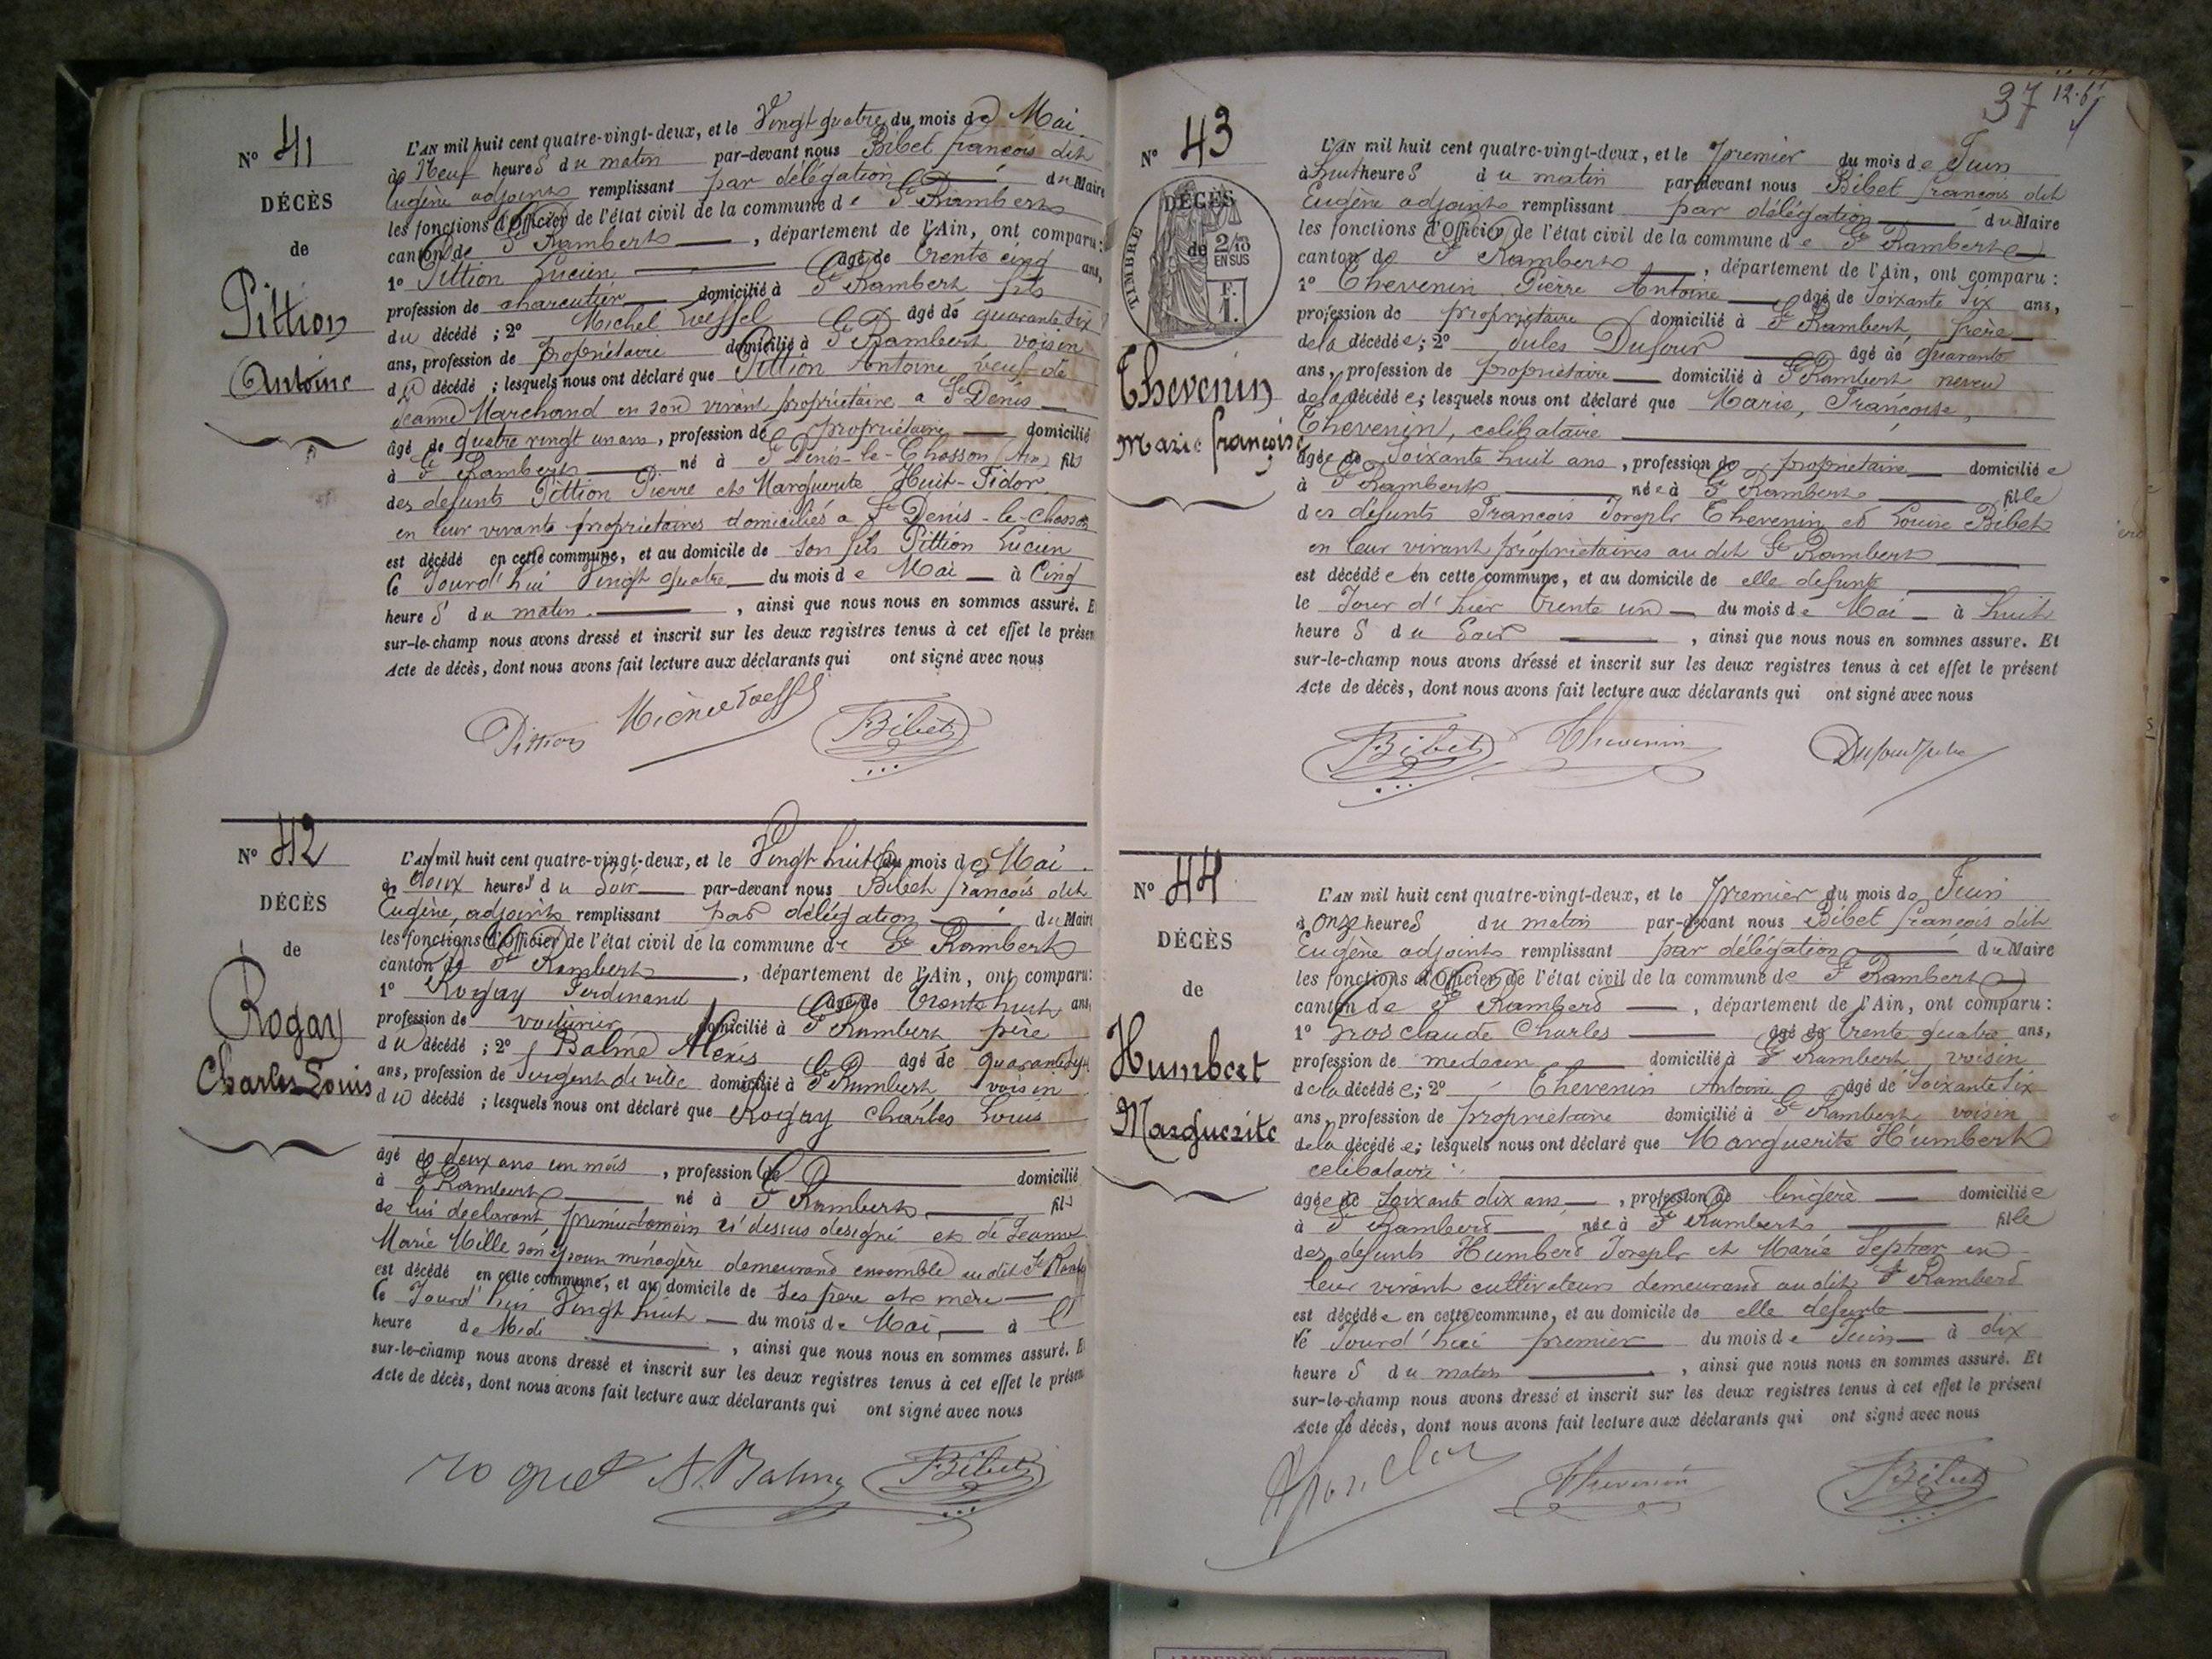 N° 41
DÉCÈS
de
Pittion
Antoine
L'AN mil huit cent quatre-vingt-deux, et le Vingt quatre du mois de Mai
à Neuf heures du matin par-devant nous Bibet françois dit
Eugène adjoint remplissant par délégation du Maire
les fonctions d'Officier de l'état civil de la commune de St Rambert
canton de St Rambert, département de l'Ain, ont comparu :
1° Pittion Lucien âgé de trente cinq ans,
profession de charcutier domicilié à St Rambert fils
du décédé ; 2° Michel Loeffel âgé de quarante six
ans, profession de propriétaire domicilié à St Rambert voisin
du décédé ; lesquels nous ont déclaré que Pittion Antoine veuf de
Jeanne Marchand en son vivant propriétaire a St Denis
âgé de quatre vingt un ans, profession de propriétaire domicilié
à St Rambert né à St Denis-le-Chosson (Ain) fils
des defunts Pittion Pierre et Marguerite Huit-Fidor
en leur vivants propriétaires domiciliés a St Denis-le-Chosson
est décédé en cette commune, et au domicile de son fils Pittion Lucien
le Jourd'hui Vingt quatre du mois de Mai à Cinq
heures du matin, ainsi que nous nous en sommes assuré. E
sur-le-champ nous avons dressé et inscrit sur les deux registres tenus à cet effet le présen
Acte de décès, dont nous avons fait lecture aux déclarants qui ont signé avec nous
Pittion Michel Loeffel Bibet
N° 42
DÉCÈS
de
Rogay
Charles Louis
L'AN mil huit cent quatre-vingt-deux, et le Vingt huit du mois de Mai
à deux heures du Soir par-devant nous Bibet françois dit
Eugène, adjoint remplissant par délégation du Maire
les fonctions d'Officier de l'état civil de la commune de St Rambert
canton de St Rambert, département de l'Ain, ont comparu:
1° Rogay Ferdinand âgé de trente huit ans
profession de voiturier domicilié à St Rambert père
du décédé ; 2° Balme Alexis âgé de quarante
ans, profession de Sergent de ville domicilié à St Rambert voisin
du décédé ; lesquels nous ont déclaré que Rogay Charles Louis
âgé de deux ans un mois, profession de domicilié
à St Rambert né à St Rambert fils
de lui declarant premier temoin ci dessus designé et de Jeanne
Marie Mille son epouse ménagère demeurant ensemble au dit St Ramb
est décédé en cette commune, et au domicile de ses père et mère
le Jourd'hui Vingt huit du mois de Mai à l'
heure de Midi, ainsi que nous nous en sommes assuré. E
sur-le-champ nous avons dressé et inscrit sur les deux registres tenus à cet effet le présen
Acte de décès, dont nous avons fait lecture aux déclarants qui ont signé avec nous
A. Balme Bibet
37
N° 43
DÉCÈS
de
TIMBRE
2/10
EN SUS
F.
1.
Thevenin
Marie françoise
L'AN mil huit cent quatre-vingt-deux, et le premier du mois de Juin
à huit heures du matin par-devant nous Bibet françois dit
Eugène adjoint remplissant par délégation du Maire
les fonctions d'Officier de l'état civil de la commune de St Rambert
canton de St Rambert, département de l'Ain, ont comparu :
1° Thevenin Pierre Antoine âgé de Soixante Six ans,
profession de propriétaire domicilié à St Rambert frère
de la décédée; 2° Jules Dufour âgé de quarante
ans, profession de propriétaire domicilié à St Rambert neveu
de la décédée; lesquels nous ont déclaré que Marie, Françoise,
Thevenin, celibataire
âgée de Soixante huit ans, profession de propriétaire domiciliée
à St Rambert née à St Rambert fille
des defunts François Joseph Thevenin et Louise Bibet
en leur vivant propriétaires au dit St Rambert
est décédée en cette commune, et au domicile de elle defunte
le Jour d'hier trente un du mois de Mai à huit
heures du Soir, ainsi que nous nous en sommes assuré. Et
sur-le-champ nous avons dressé et inscrit sur les deux registres tenus à cet effet le présent
Acte de décès, dont nous avons fait lecture aux déclarants qui ont signé avec nous
Bibet Thevenin Dufour Jules
N° 44
DÉCÈS
de
Humbert
Marguerite
L'AN mil huit cent quatre-vingt-deux, et le premier du mois de Juin
à onze heures du matin par-devant nous Bibet françois dit
Eugène adjoint remplissant par délégation du Maire
les fonctions d'Officier de l'état civil de la commune de St Rambert
canton de St Rambert, département de l'Ain, ont comparu :
1° Grosclaude Charles âgé de trente quatre ans,
profession de medecin domicilié à St Rambert voisin
de la décédée; 2° Thevenin Antoine âgé de Soixante Six
ans, profession de propriétaire domicilié à St Rambert voisin
de la décédée; lesquels nous ont déclaré que Marguerite Humbert
celibataire
âgée de Soixante dix ans, profession de lingère domiciliée
à St Rambert née à St Rambert fille
des defunts Humbert Joseph et Marie en
leur vivant cultivateurs demeurant au dit St Rambert
est décédée en cette commune, et au domicile de elle defunte
le Jourd'hui premier du mois de Juin à dix
heures du matin, ainsi que nous nous en sommes assuré. Et
sur-le-champ nous avons dressé et inscrit sur les deux registres tenus à cet effet le présent
Acte de décès, dont nous avons fait lecture aux déclarants qui ont signé avec nous
Thevenin Bibet